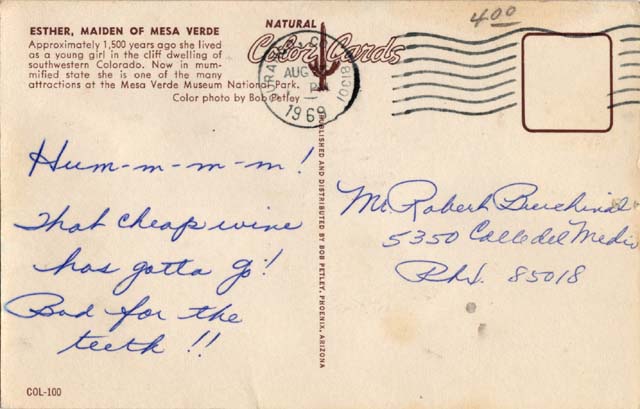 ESTHER, MAIDEN OF MESA VERDE
Approximately 1,500 years ago she lived
as a young girl in the cliff dwelling of
southwestern Colorado. Now in mum-
mified state she is one of the many
attractions at the Mesa Verde Museum National Park.
Color photo by Bob Petley
NATURAL
Color Cards
AUG
1969
81301
4.00
PUBLISHED AND DISTRIBUTED BY BOB PETLEY, PHOENIX, ARIZONA
Hum-m-m-m!
That cheap wine
has gotta go!
Bad for the
teeth !!
Mr. Robert
5350 Calle del Medio
Phx. 85018
COL-100